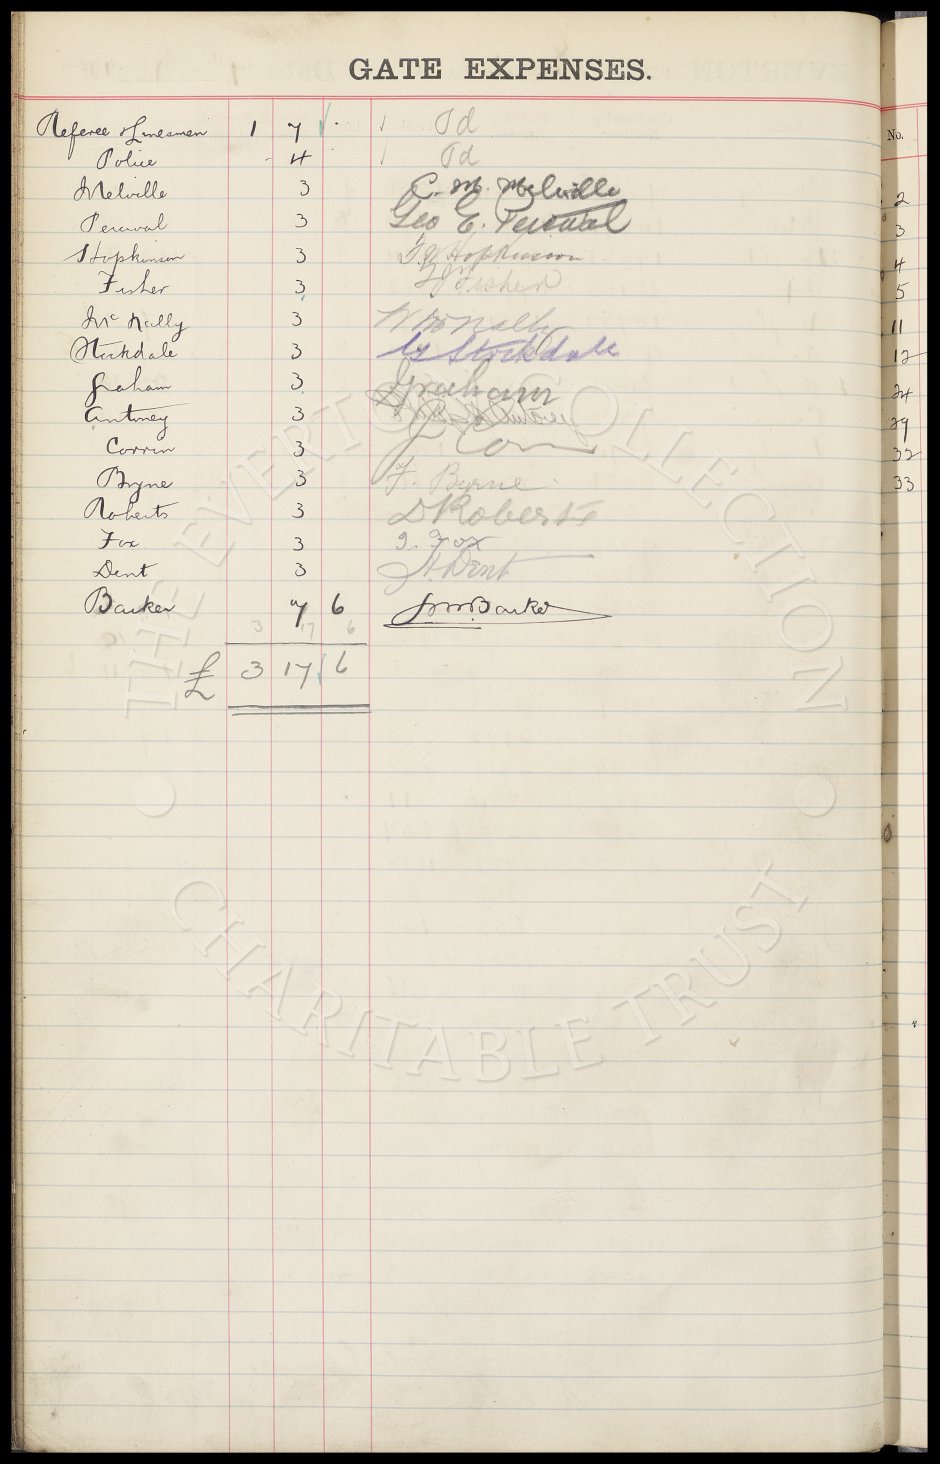 GATE EXPENSES.
Referee & Linesmen 1 7 . Pd
Police - 4 Pd
Melville 3 C. M. Melville
Percival 3 Geo E. Percival
Hopkinson 3 Hopkinson
Fisher 3 Fisher
Mc Nally 3 W McNally
Stockdale 3 Stockdale
Graham 3 Graham
Antiney 3
Corrin 3 J Corrin
Byrne 3 F. Byrne
Roberts 3 D Roberts
Fox 3 J. Fox
Dent 3 A. Dent
Barker 7 6 Barker
3 17 6
£ 3 17 6
No.
2
3
4
5
11
12
24
29
32
33
THE EVERTON COLLECTION
CHARITABLE TRUST